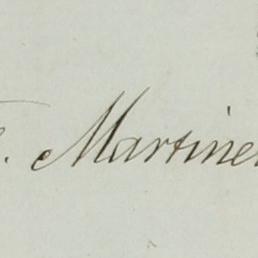 . Martine